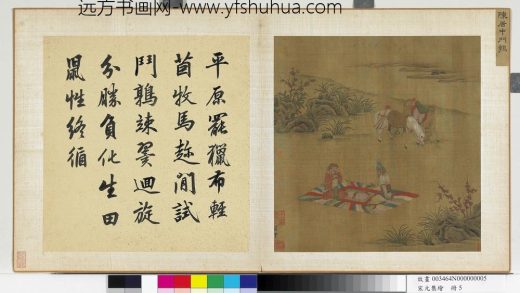 远方书画网-www.yfshuhua.com
陳居中鬥鵪
平原罷獵布輕
茵牧馬趂閒試
鬥鶉竦翼迴旋
分勝負化生田
鼠性終循
故畫 003464N000000005
宋元集繪 冊 5